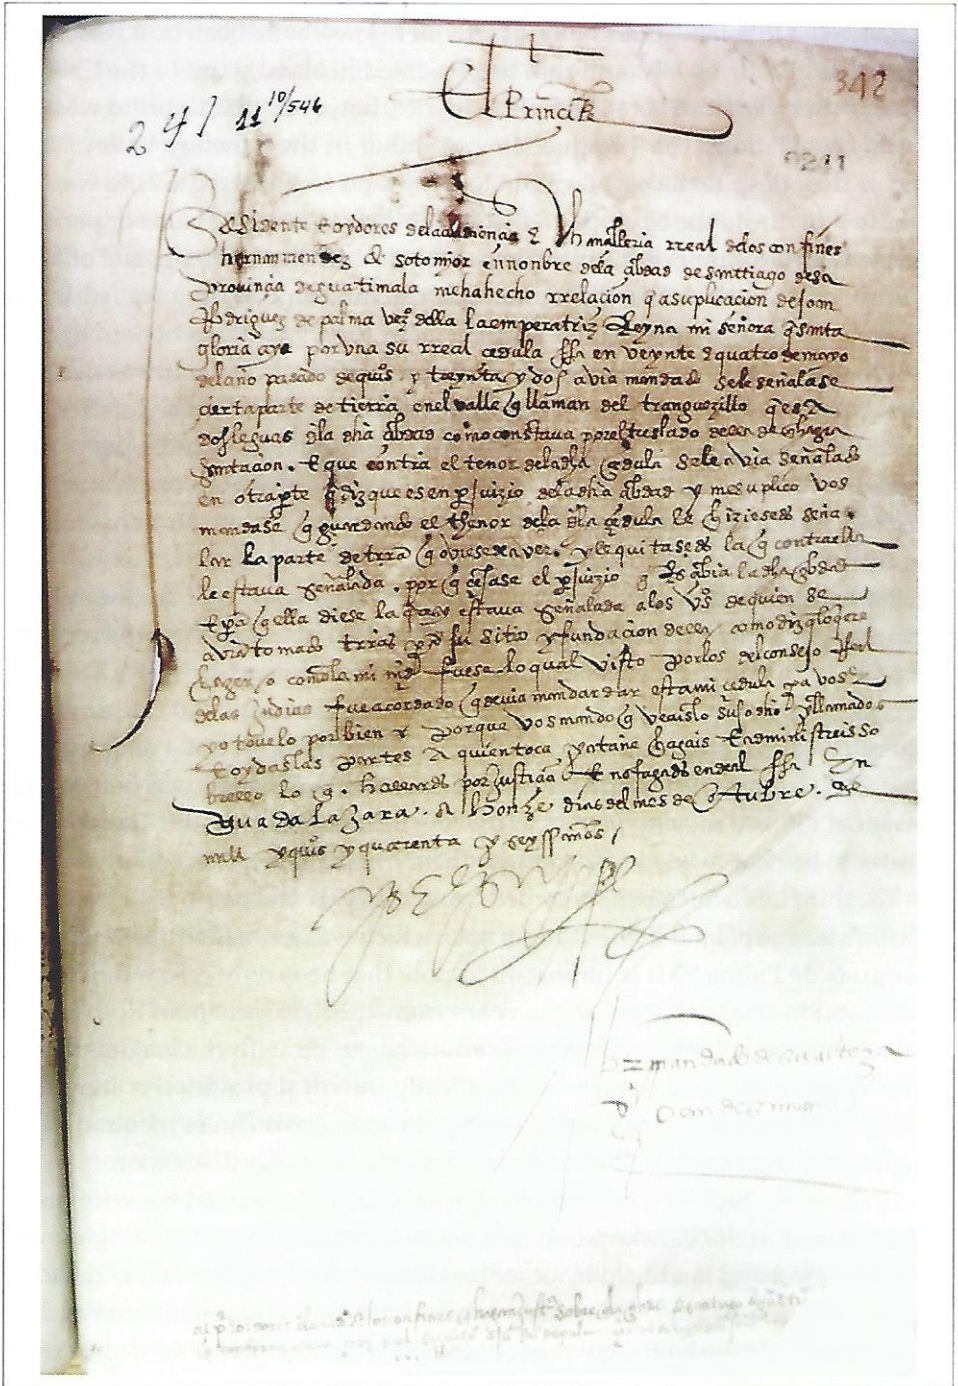 342
241 11 10/546
El Prinçipe
0241
Presidente e oydores dela audiençia e chançilleria rreal delos confines
hernan mendez de sotomayor en nonbre dela çibdad de santtiago desa
provinçia de guatimala me ha hecho rrelaçion q a suplicaçion de joan
Rodriguez de palma vezº della la emperatriz Reyna mi señora q santa
gloria aya por una su rreal çedula ffa en veynte e quatro de mayo
del año pasado de quiºs y treynta y dos avia mandado se le señalase
çierta parte de tierra enel valle q llaman del tianguezillo q es a
dos leguas dla dha çibdad como constava por el treslado della de q hazia
. E que contra el tenor dela dha çedula se le avia señalado
en otra pte q diz que es en pjuizio dela dha çibdad y me suplico vos
mandase q guardando el thenor dela dha çedula le hiziesedes seña
lar la parte de trra q oviese de aver. y le quitasedes la q contra ella
le estava señalada. por q çesase el pjuizio q rresçibia la dha çibdad
E pa q ella diese la q asy estava señalada a los vºs de quien se
avian tomado trras pa su sitio y fundaçion della como diz q lo quiere
hazer o como la mi md fuese. lo qual visto por los del consejo Real
delas Yndias fue acordado q devia mandar dar esta mi çedula pa vos e
yo tovelo por bien porque vos mando q veais lo susodho y llamadas
e oydas las partes a quien toca y atañe hagais e administreis so
brello lo q hallardes por justiçia E no fagades ende al ffa En
Guadalaxara. a honze dias del mes de otubre. de
mill y quiºs y quarenta y seys años /
Yo El Prinçipe
Por mandado de su alteza